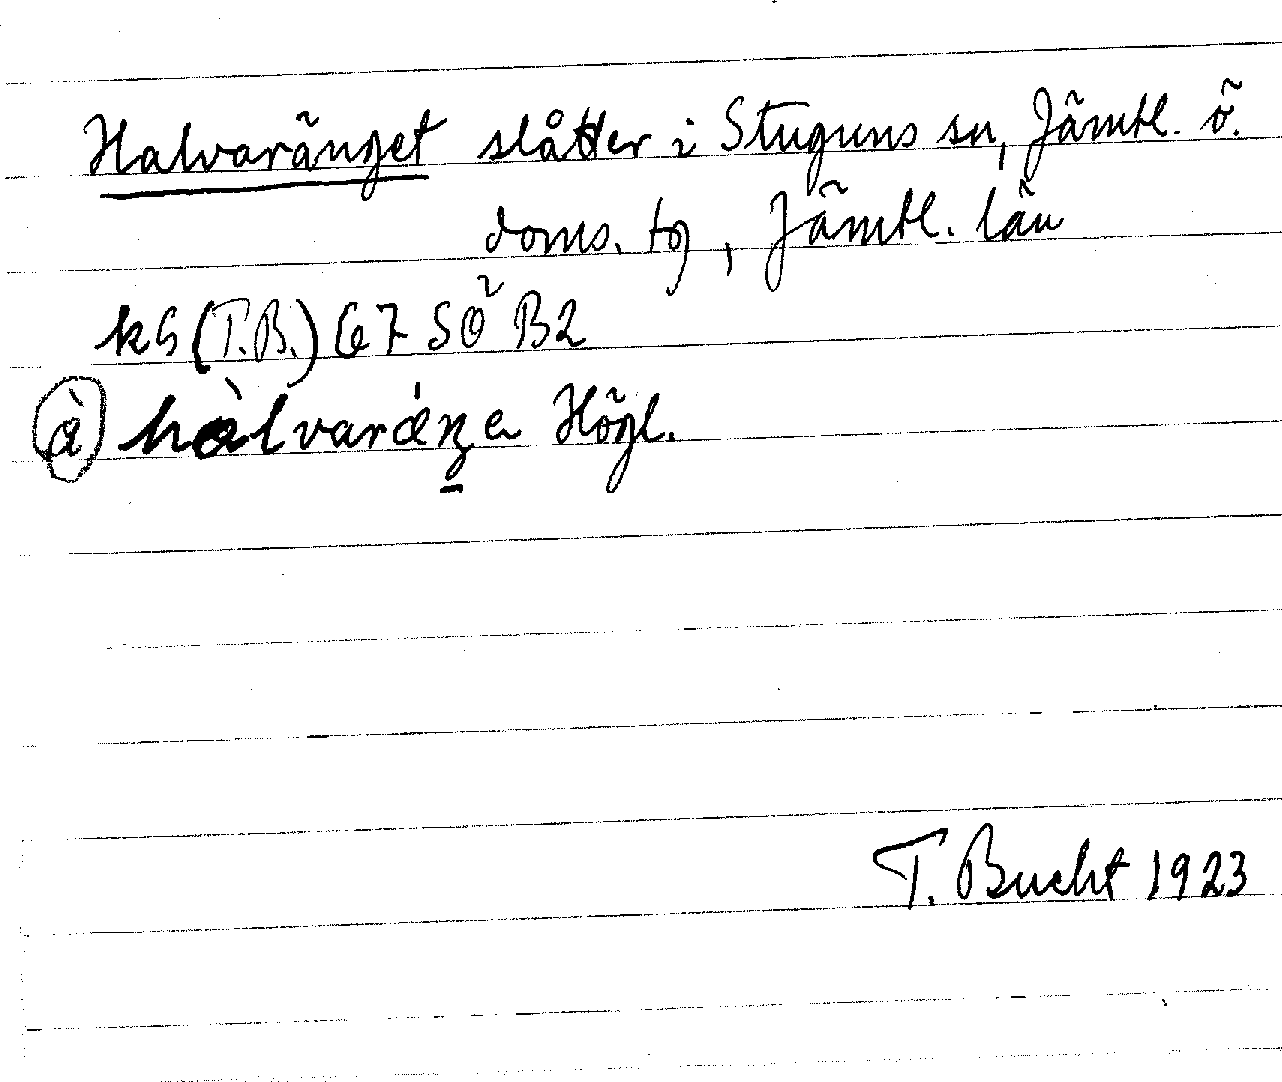 Halvaränget slåtter i Stuguns sn, Jämtl. ö.
doms. tg, Jämtl. län
kS (T.B.) 67 SÖ B2
à hàlvaráŋa Högl.
T. Bucht 1923